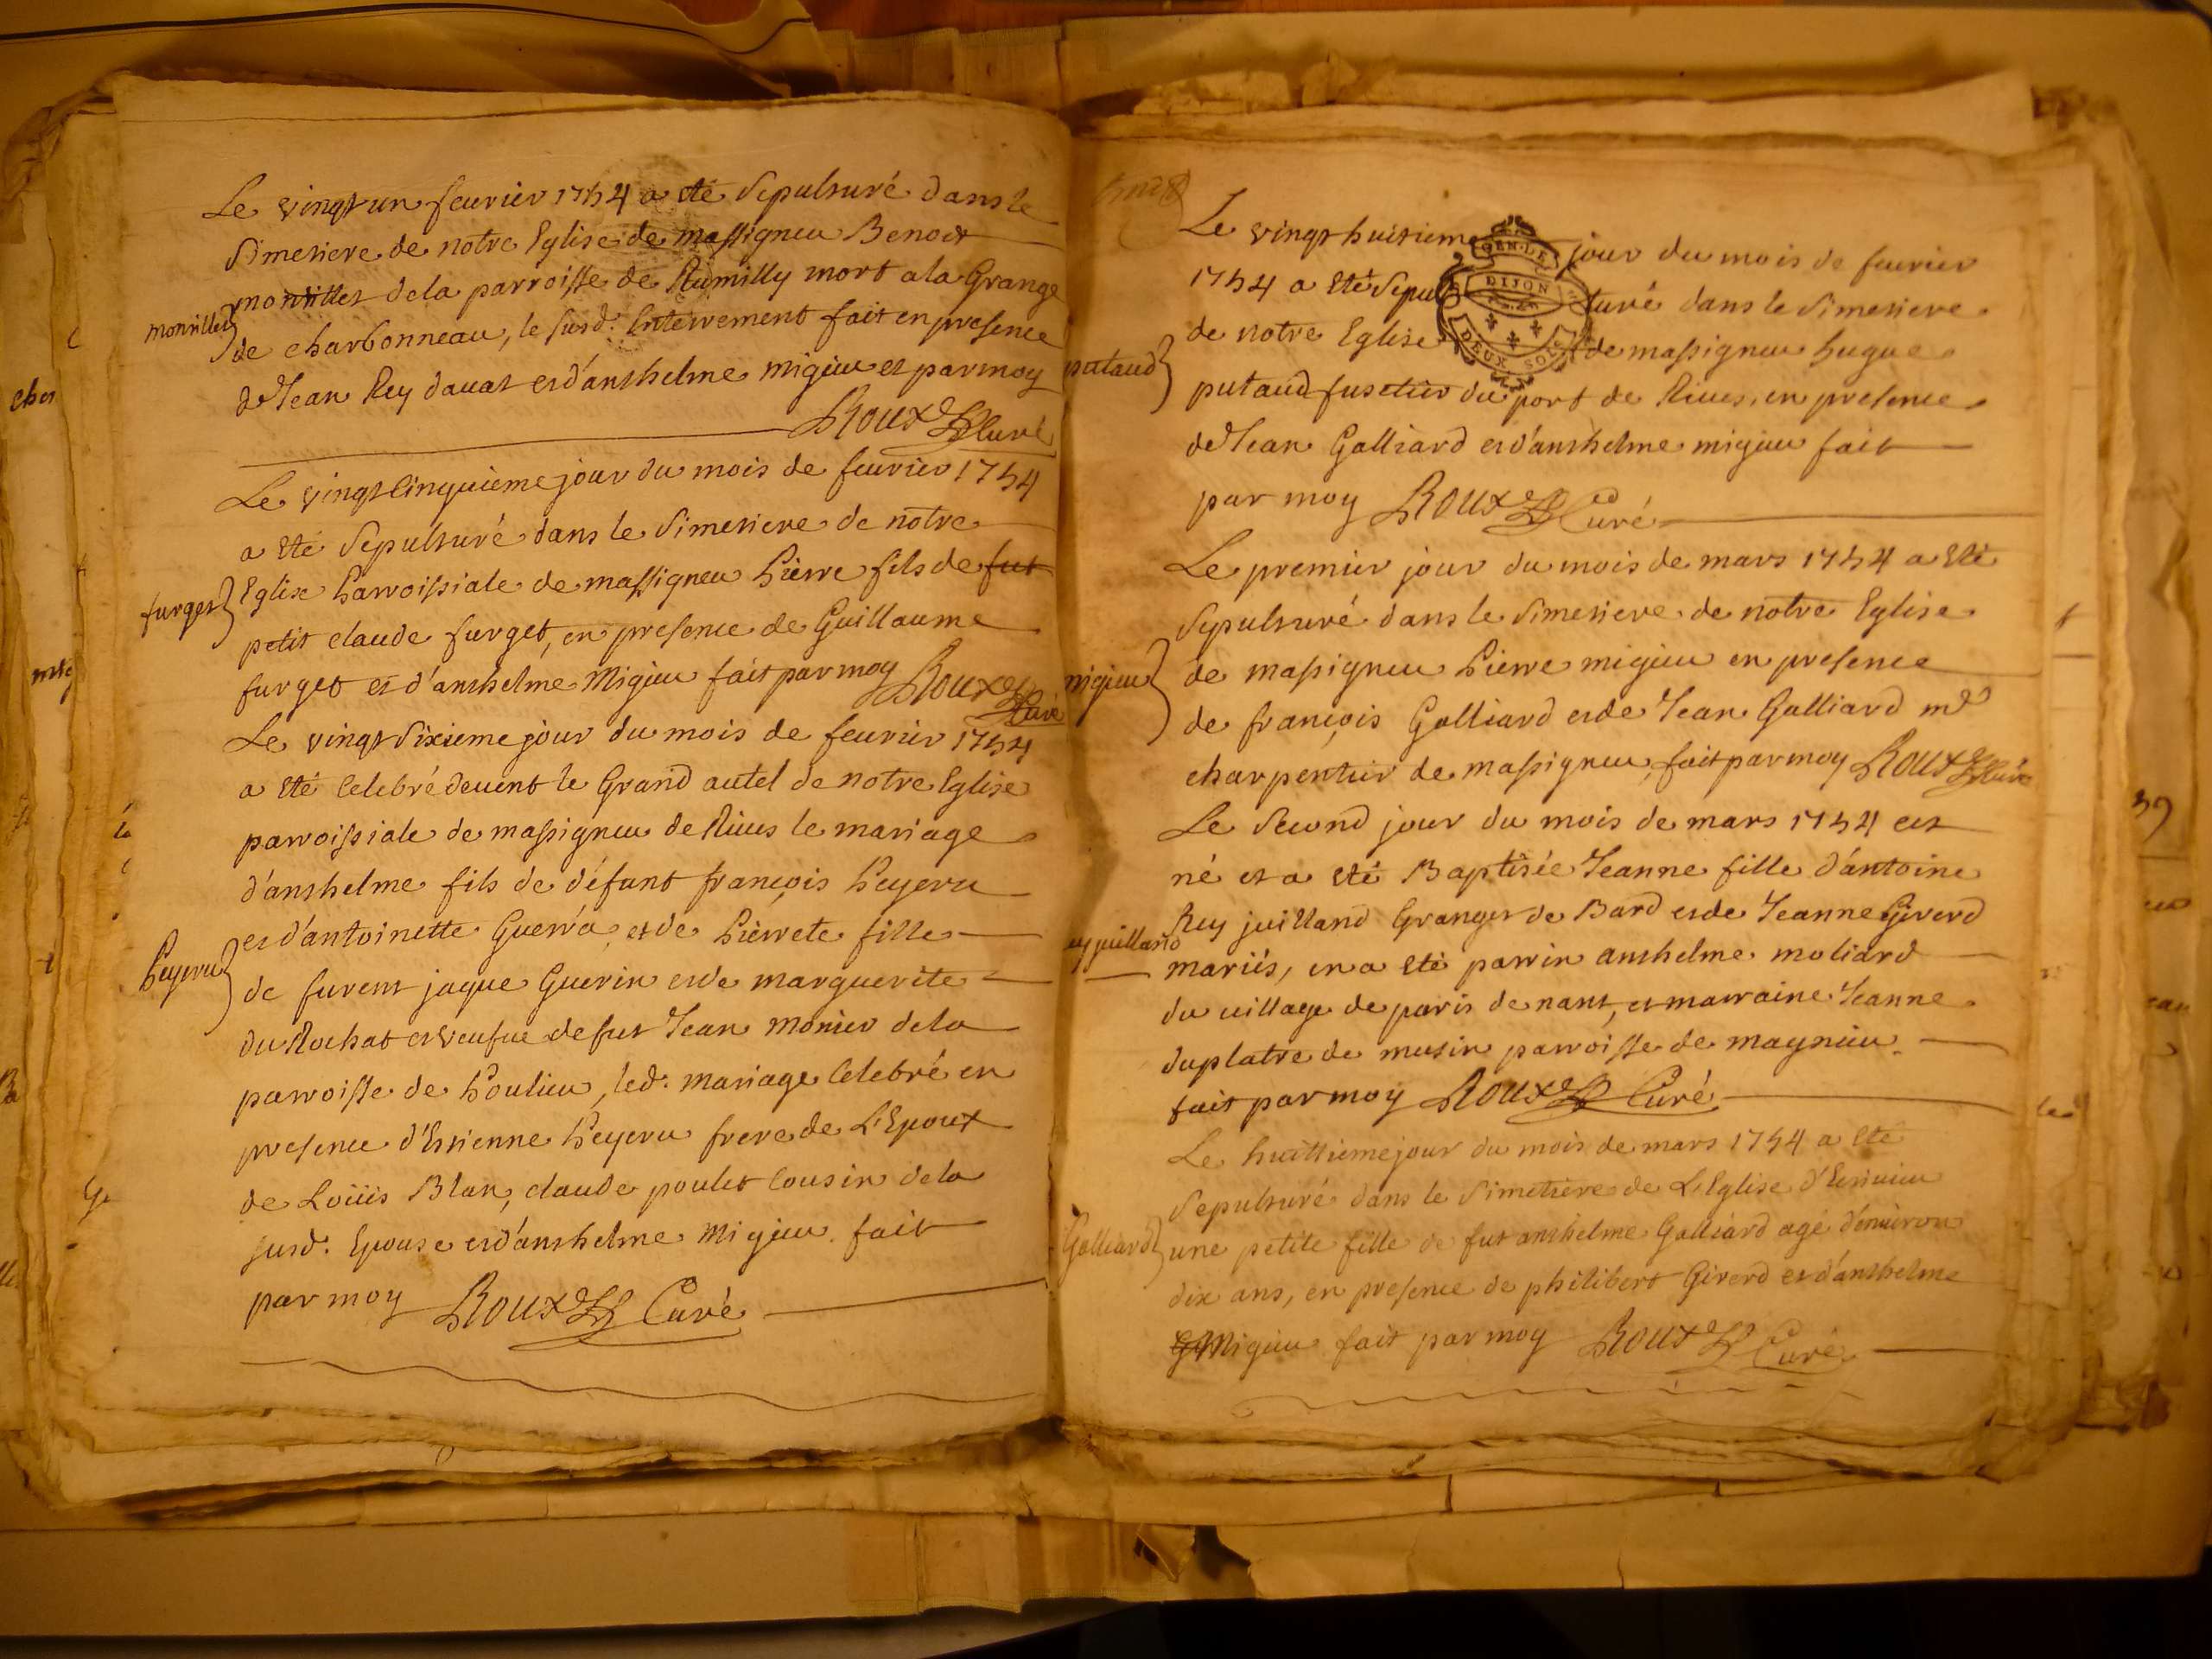 Le vingt un feurier 1754 a eté Sepulturé dans le
Simetiere de notre Eglise de massigneu Benoit
monillet dela parroisse de Rumilly mort a la Grange
monillet
de charbonneau, le susd. Enterrement fait en presence
de Jean Rey dauat et d'anthelme migieu et par moy
Roux Curé
Le vingt Cinquieme jour du mois de feurier 1754
a eté Sepulturé dans le Simetiere de notre
Eglise Parroissiale de massigneu Pierre fils de fut
furget
petit claude furget, en presence de Guillaume
furget et d'anthelme Migieu fait par moy Roux Curé
Le vingt Sixieme jour du mois de feurier 1754
a eté Celebré deuent le Grand autel de notre Eglise
parroissiale de massigneu de Riues le mariage
d'anthelme fils de défunt françois Peyeru
et d'antoinette Guerra, et de Pierrete fille
Peyeru
de furent jaque Guerin et de marguerite
du Rochat et veufue de fut Jean monier dela
parroisse de Poulieu, led. mariage Celebré en
presence d'Estienne Peyeru frere de L'Epoux
de Loüis Blan, claude poulet Cousin dela
susd. Epouse et d'anthelme Migieu. fait
par moy Roux Curé
Le vingt huitieme jour du mois de feurier
1754 a eté Sepulturé dans le Simetiere
GEN. LE
DIJON
DEUX SOLS
de notre Eglise de massigneu hugue
putaud
putaud fustier du port de Riues, en presence
de Jean Galliard et d'anthelme migieu fait
par moy Roux Curé
Le premier jour du mois de mars 1754 a eté
Sepulturé dans le Simetiere de notre Eglise
migieu
de massigneu Pierre migieu en presence
de françois Galliard et de Jean Galliard md
charpentier de massigneu, fait par moy Roux Curé
Le Second jour du mois de mars 1754 est
né et a eté Baptisée Jeanne fille d'antoine
Rey juilland Granger de Bard et de Jeanne Girerd
ey juilland
mariés, en a eté parrin anthelme moliard
du uillage de paris de nant, et marraine Jeanne
duplatre de musin parroisse de magnieu
fait par moy Roux Curé
Le huittieme jour du mois de mars 1754 a eté
Sepulturé dans le Simetiere de L'Eglise d'
Galliard
une petite fille de fut anthelme Galliard agé d'enuiron
dix ans, en presence de philibert Girerd et d'anthelme
Migieu fait par moy Roux Curé